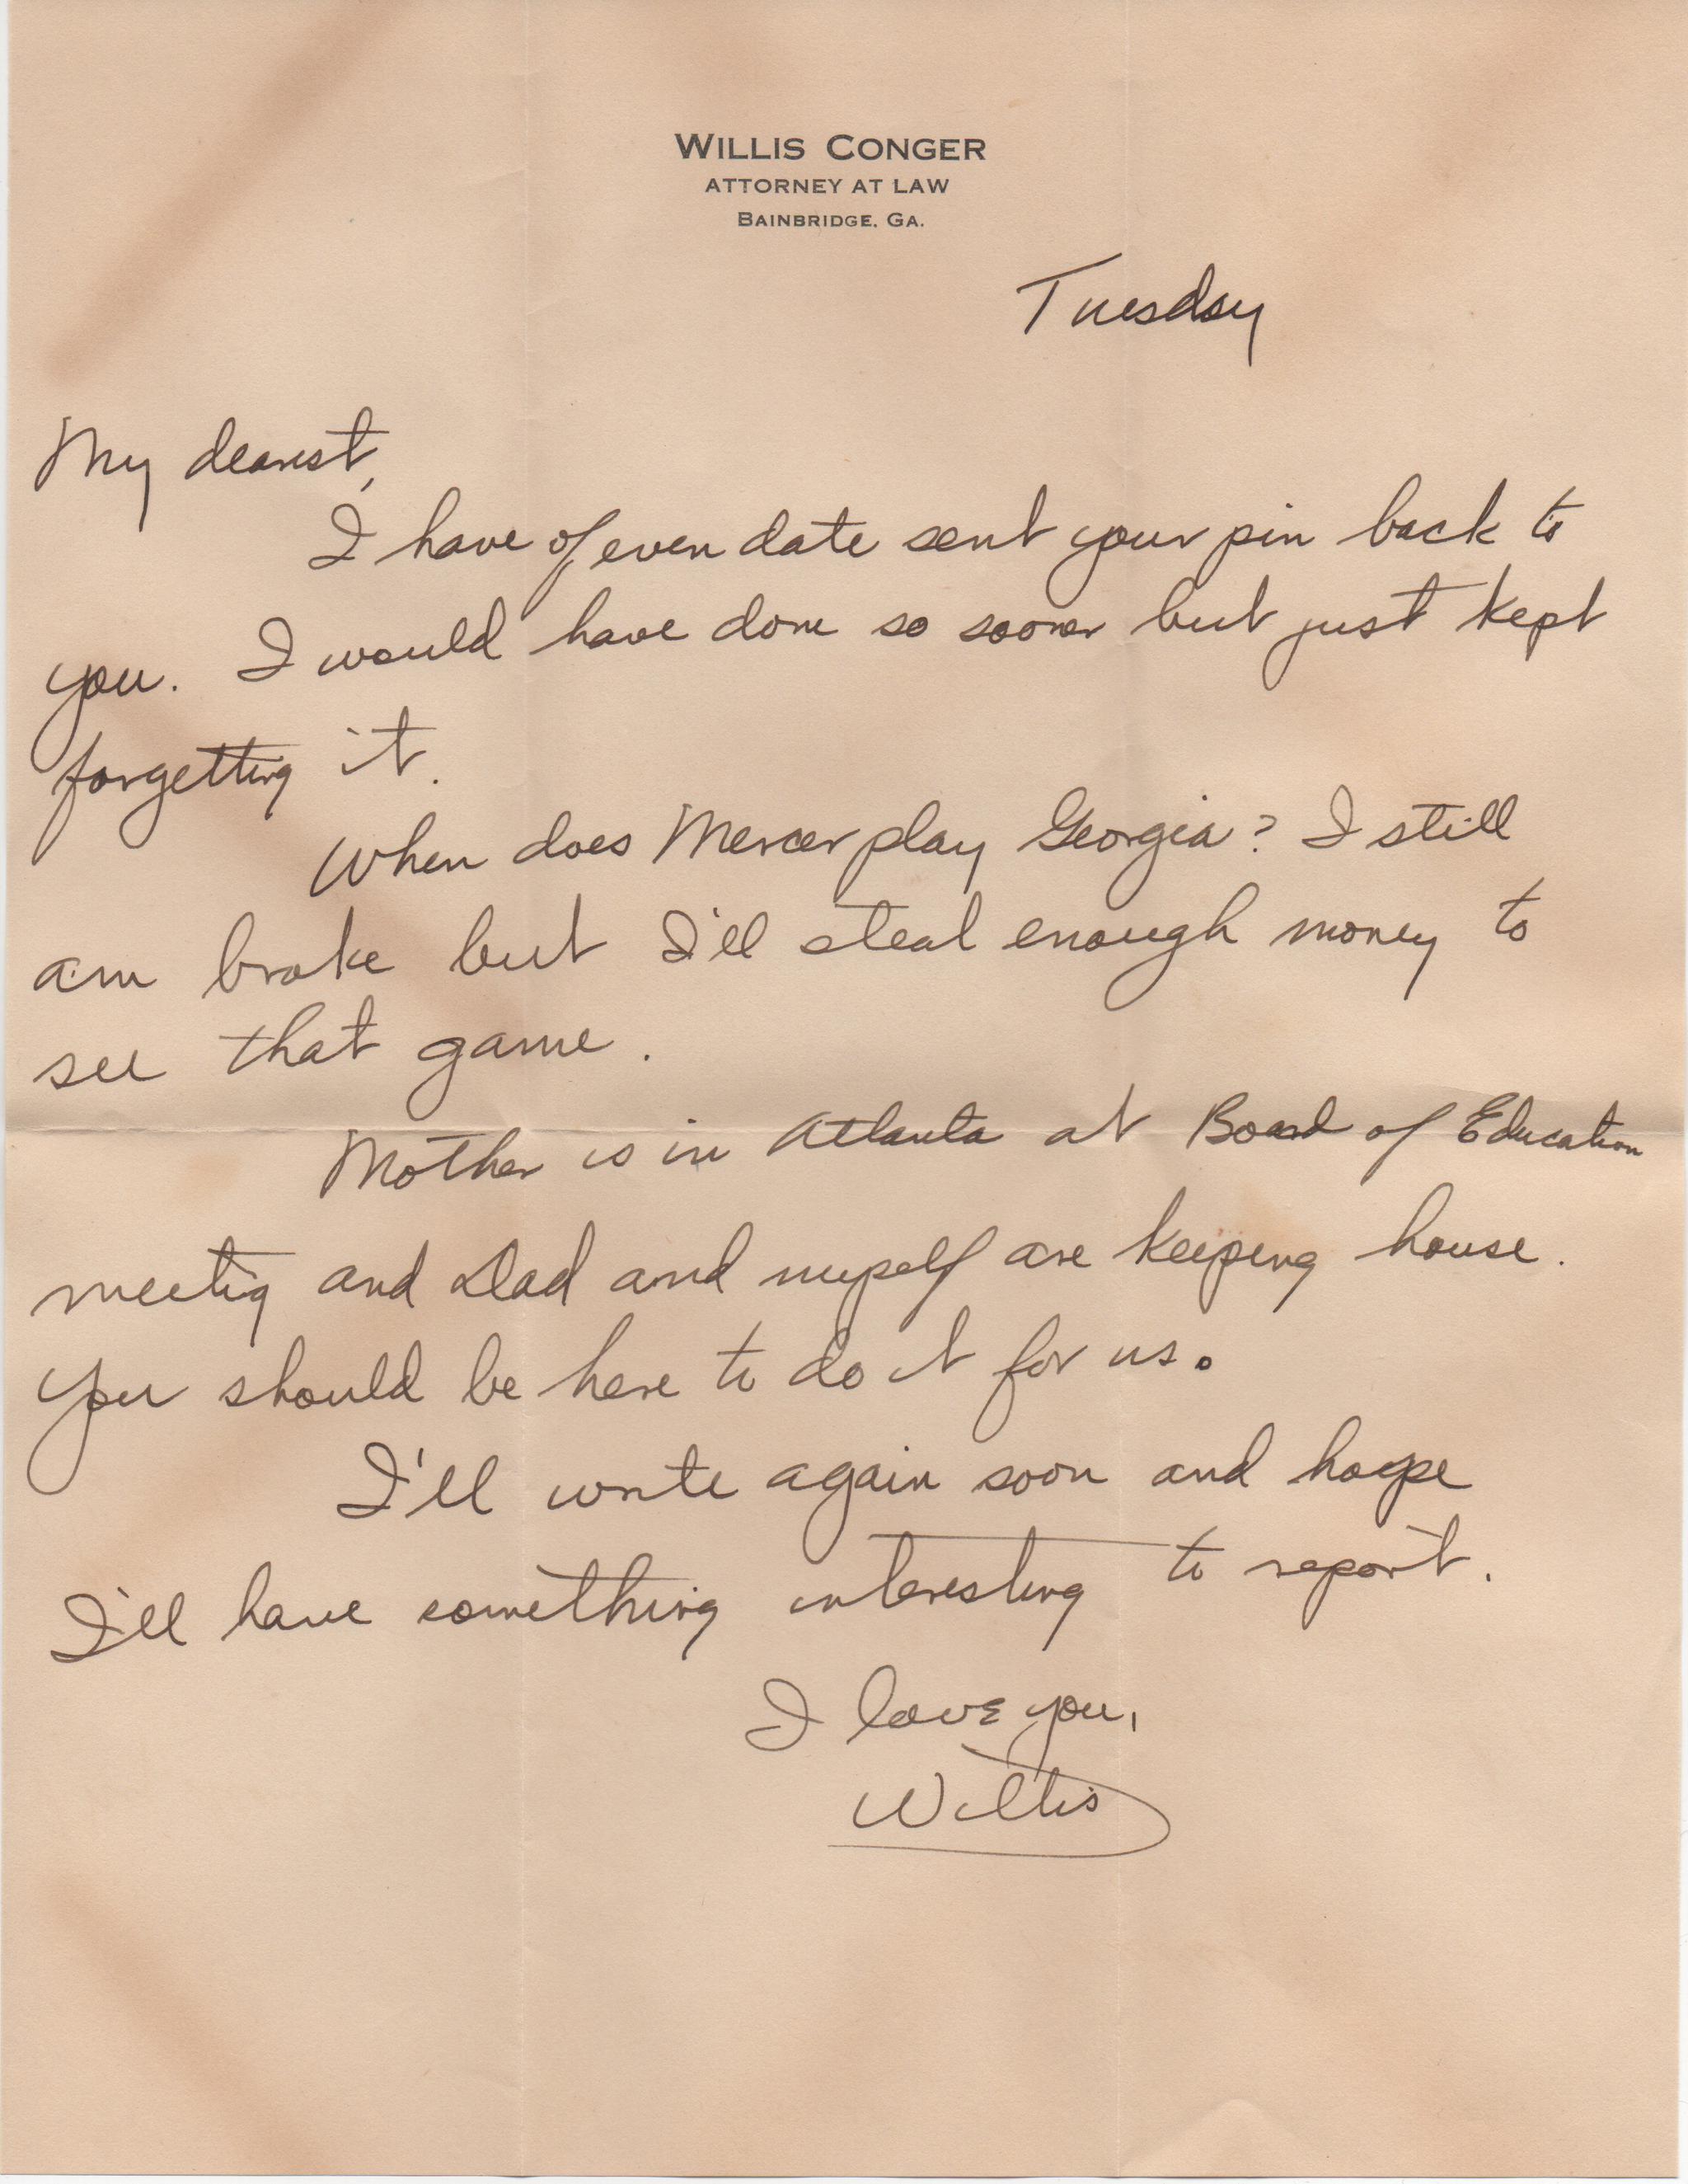 WILLIS CONGER
ATTORNEY AT LAW
BAINBRIDGE, GA.
Tuesday
My dearest,
I have of even date sent your pin back to
you. I would have done so sooner but just kept
forgetting it.
When does Mercer play Georgia? I still
am broke but I'll steal enough money to
see that game.
Mother is in Atlanta at Board of Education
meetig and Dad and myself are keeping house.
You should be here to do it for us.
I'll write again soon and hope
I'll have something interesting to report.
I love you,
Willis